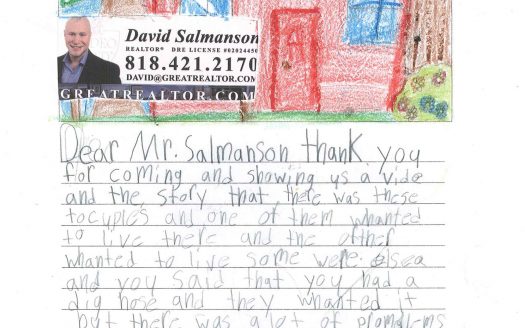 David Salmanson
REALTOR® DRE LICENSE #02024450
818.421.2170
DAVID@GREATREALTOR.COM
GREATREALTOR.COM
Dear Mr. Salmanson thank you
for coming and showing us a vide
and the story that there was these
tocuples and one of them whanted
to live there and the other
whanted to live some were elsea
and you said that you had a
dig hose and they whanted it
but there was a lot of promlems